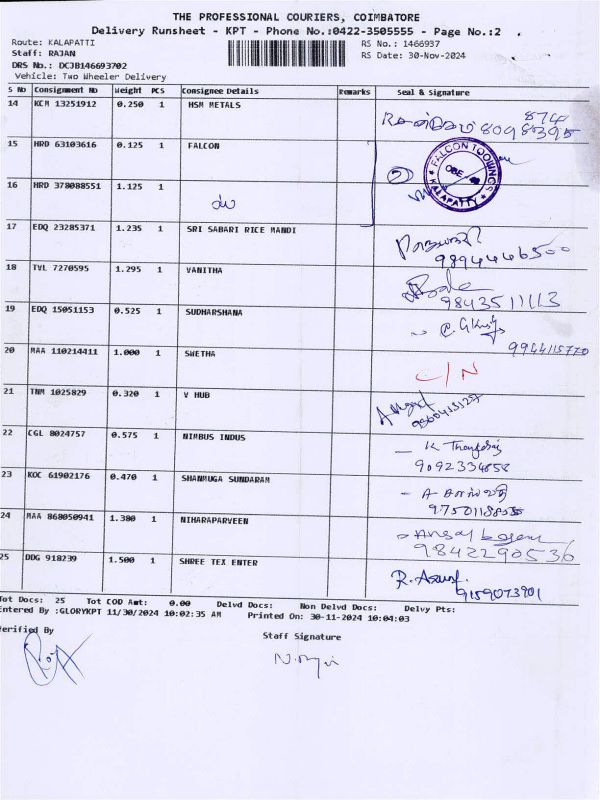 THE PROFESSIONAL COURIERS, COIMBATORE
Delivery Runsheet - KPT - Phone No.:0422-3505555 - Page No.:2
Route: KALAPATTI
RS No.: 1466937
Staff: RAJAN
RS Date: 30-Nov-2024
DRS No.: DCJB146693702
Vehicle: Two Wheeler Delivery
S No Consignment No Weight PCS Consignee Details Remarks Seal & Signature
14 KCM 13251912 0.250 1 HSM METALS
874
8098395
15 HRD 63103616 0.125 1 FALCON
FALCON TOOLINGS
KALAPATTY
16 HRD 378088551 1.125 1
2
17 EDQ 23285371 1.235 1 SRI SABARI RICE MANDI
9894446500
18 TVL 7270595 1.295 1 VANITHA
Bala
9843511113
19 EDQ 15051153 0.525 1 SUDHARSHANA
9944115770
20 MAA 110214411 1.000 1 SWETHA
C/N
21 TNM 1025829 0.320 1 V HUB
22 CGL 8024757 0.575 1 NIMBUS INDUS
9092334858
23 KOC 61902176 0.470 1 SHANMUGA SUNDARAM
24 MAA 868050941 1.380 1 NIHARAPARVEEN
9842290536
25 DDG 918239 1.500 1 SHREE TEX ENTER
9159073901
Tot Docs: 25 Tot COD Amt: 0.00 Delvd Docs: Non Delvd Docs: Delvy Pts:
Entered By :GLORYKPT 11/30/2024 10:02:35 AM Printed On: 30-11-2024 10:04:03
Verified By
Staff Signature